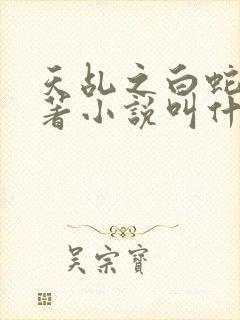 天乱之白蛇
著小説叫什
吴宗寶